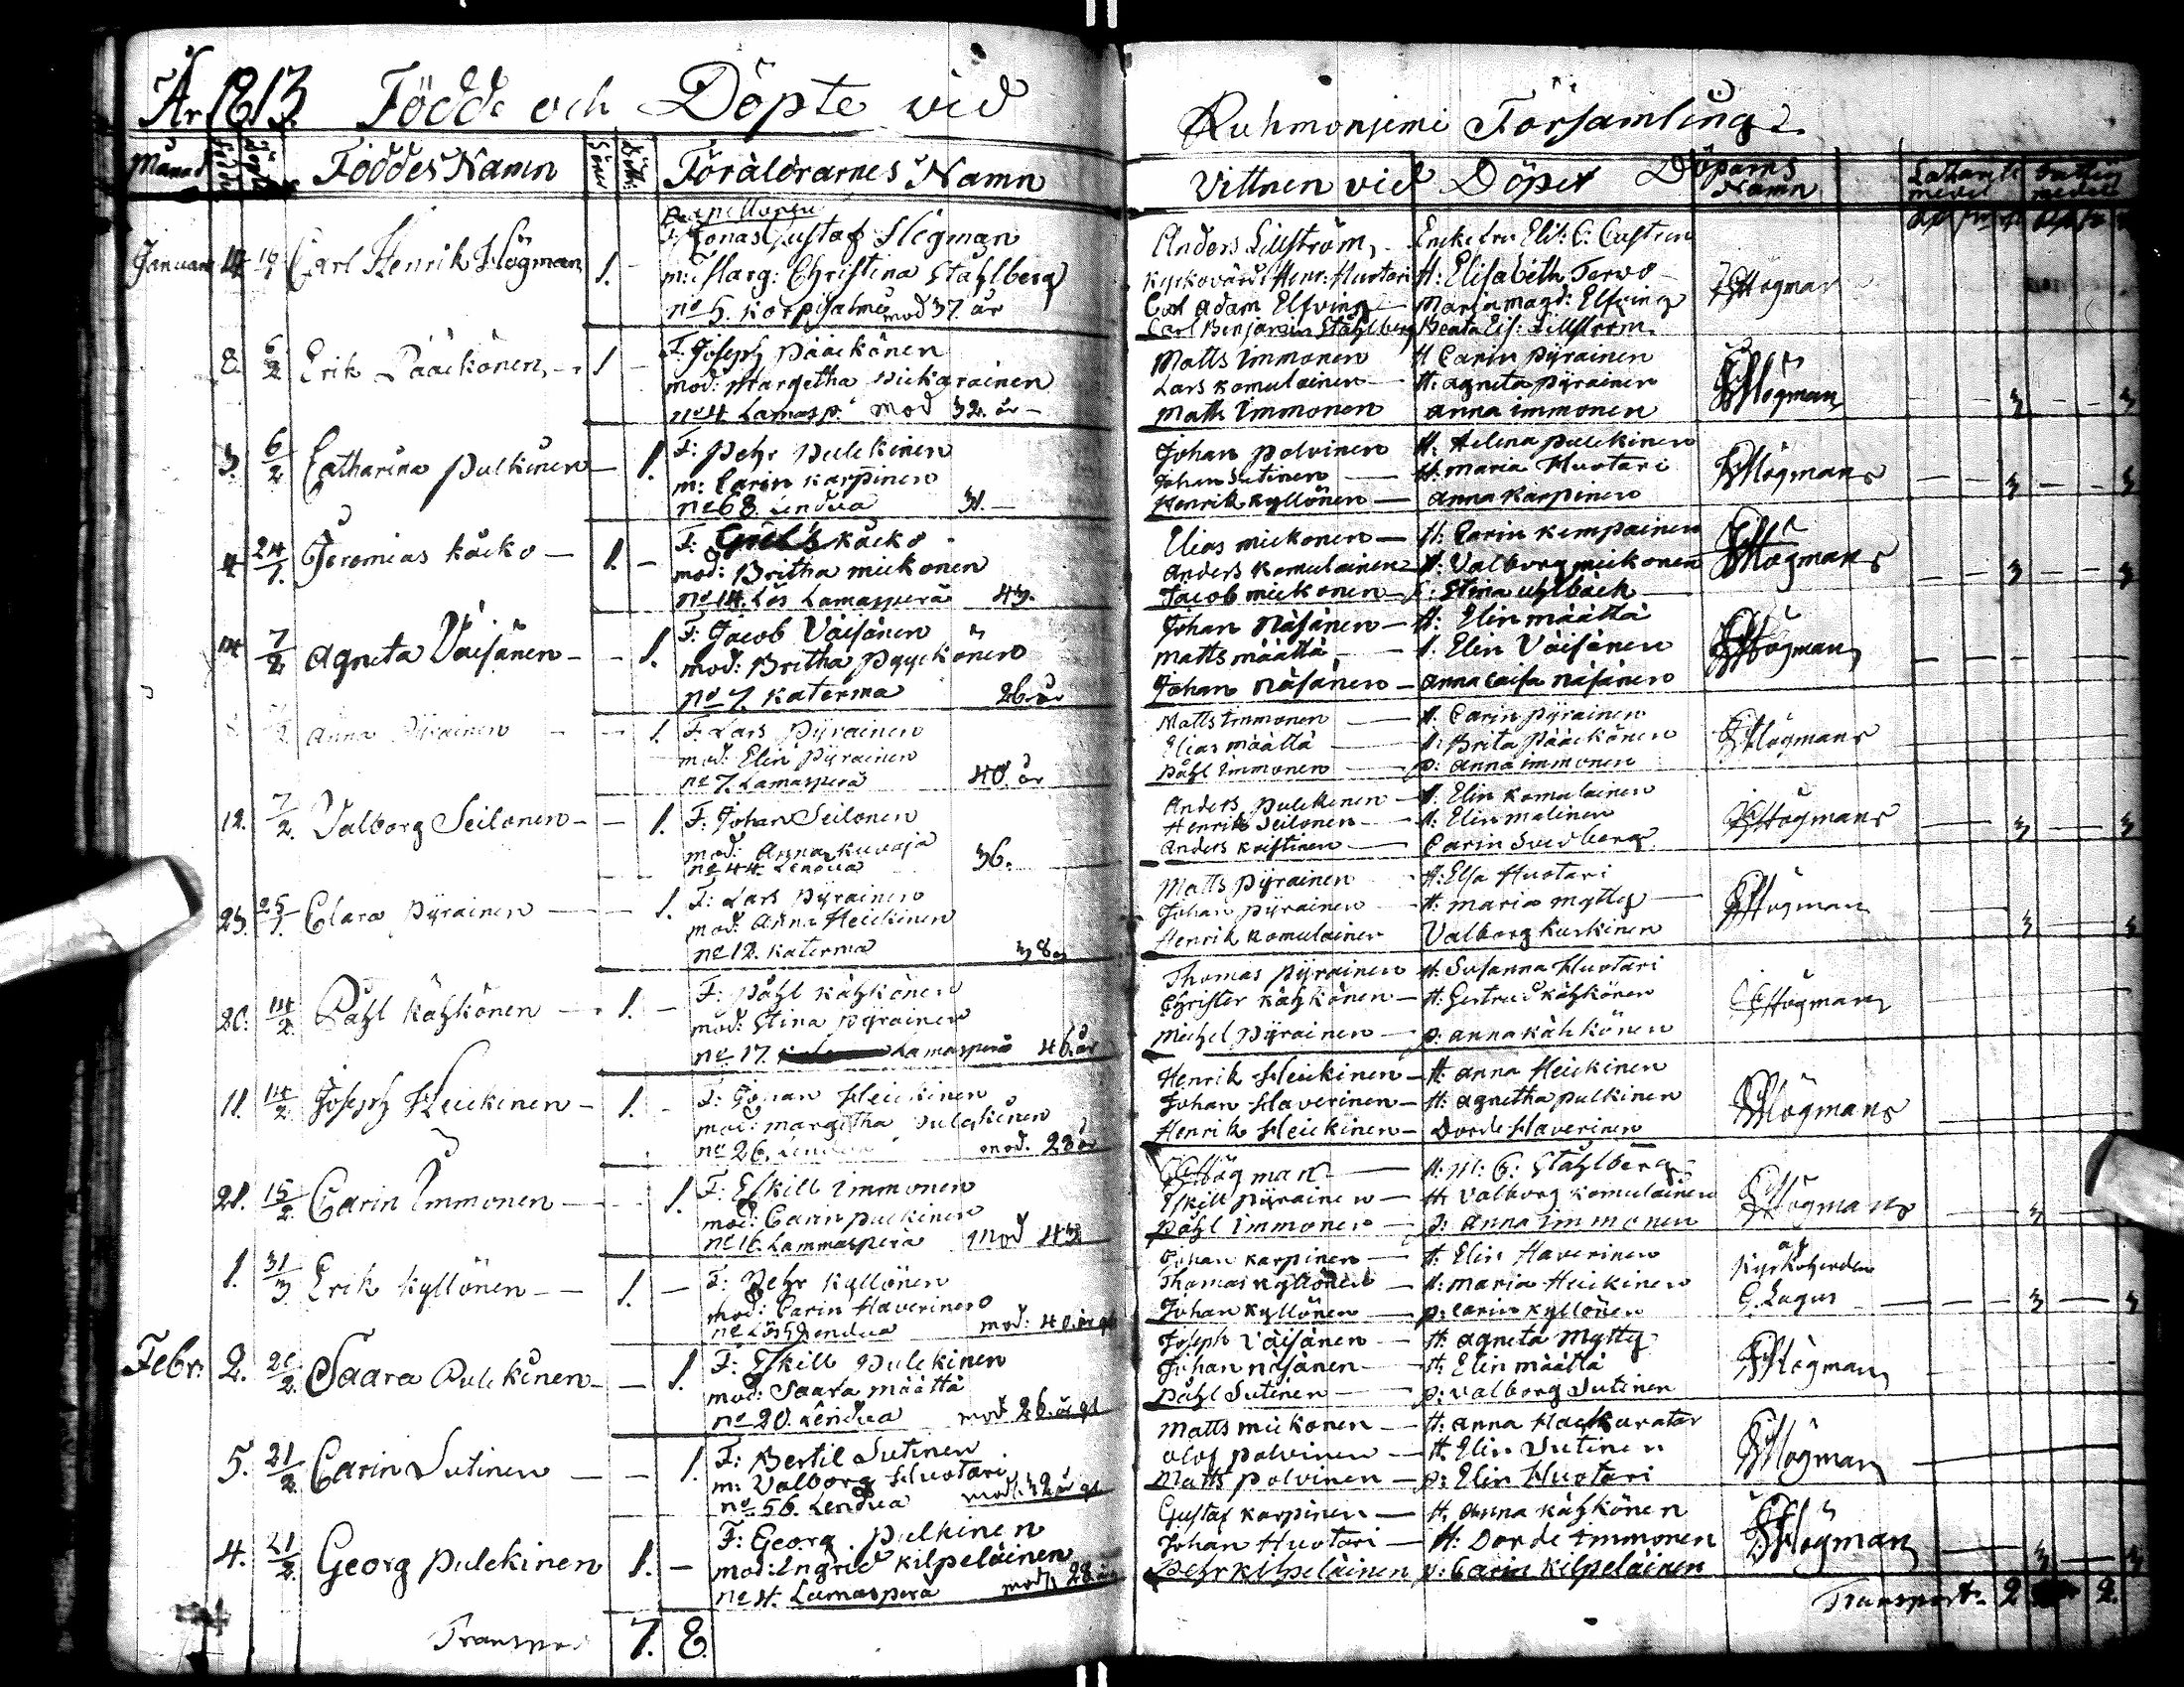 År 1813. Födde och Döpte vid
Månad Födde DöpteFöddes Namn Söner Dött: Föräldrarnes Namn
Capellanen
Januari 12 16/1 Carl Henrik Högman 1. - F: Jonas Gustaf Högman
m: Marg: Christina Ståhlberg
no 5. Korpisalmi mod 37. år
8. 6/2 Erik Pääckönen 1 - F: Joseph Pääckönen
mod: Margetha
no 4 Lamasp. mod 32. år -
3. 6/2 Catharina Pulkinen - 1. F: Pehr Pulckinen
m: Carin Karpinen
no 68. Lendua 31. -
4 24/1. Jeremias Käcko - 1. - F: Käcko
mod: Britha Mickonen
no 14. Lamasperä 43.
14 7/2 Agneta Väisänen - - 1. F: Jacob Väisänen
mod: Britha Pyyckönen
no 7. Katerma 26. år
Anna Pyrainen - - 1. F: Lars Pyrainen
mod: Elin Pyrainen
no 7. Lamasperä 40. år
12. 7/2. Valborg Seilonen - - 1. F: Johan Seilonen
mod: Anna Kuvaja
no 44. Lendua 36.
23. 25/1. Clara Pyrainen - - 1. F: Lars Pyrainen
mod: Anna Heickinen
no 12. Katerma 38
20. 14/2. Påhl Kähkönen - 1. - F: Påhl Kähkönen
mod: Stina Pyrainen
no 17. Lamasperä 46. år
11. 14/2. Joseph Heickinen - 1. - F: Johan Heickinen
mod: Margetha Pulckinen
no 26. Lendua mod. 23 år
21. 15/2. Carin Immonen - - 1. F: Eskill Immonen
mod: Carin Pulckinen
no 16. Lammasperä mod 43
1. 31/3. Erik Kyllönen - - 1. - F: Pehr Kyllönen
mod: Carin Haverinen
Lendua mod: 40. år gl
Febr: 2. 20/2. Saara Pulckinen - - 1. F: Eskill Pulckinen
mod: Saara Määttä
no 20. Lendua mod 26. år gl
5. 21/2. Carin Sutinen - - 1. F: Bertil Sutinen
m: Valborg Huotari
no 56. Lendua mod. 32 år gl
4. 21/2. Georg Pulckinen 1. - F: Georg Pulkinen
mod: Ingrid Kilpeläinen
no 4. Lamasperä mod 28 år
Transport 7. 8.
Kuhmoniemi Församling
Vittnen vid Döpet Döparns Namn
Anders Lillström, Enkefru Elis: C. Castren
Kyrkovärd: Henr: Huotari H: Elisabeth Tervo - Högman
Carl Adam Elfving - Maria Magd: Elfving
Carl Benjamin Ståhlberg Beata Lis: Lillström.
Matts Immonen H Carin Pyrainen
Lars Komulainen - H: Agneta Pyrainen Högman - - 3 - - 3
Math Immonen Anna Immonen
Johan Polvinen H. Helena Pulckinen
Johan Sutinen - H: Maria Huotari Högman - - 3 - - 3
Henrik Kyllönen - Anna Karpinen
Elias Mickonen - H: Carin Kempainen
Anders Komulainen - H: Valborg Mickonen Högman - - 3 - - 3
Jacob Mickonen - Stina Uhlbäck
Johan Näsänen - H: Elin Määttä
Matts Määttä - H. Elin Väisänen Högman - - -
Johan Näsänen - Anna Caisa Näsänen
Matts Immonen - H. Carin Pyrainen
Elias Määttä - H: Brita Pääckönen Högman
Påhl Immonen - p: Anna Immonen
Anders Pulckinen - H. Elin Komulainen
Henrik Seilonen - H. Elin Malinen Högman - 3 - 3
Anders Kristinen - Carin Svedberg
Matts Pyrainen H: Elsa Huotari
Johan Pyrainen - H: Maria Mytty Högman - 3 - 3
Henrik Komulainen Valborg Kuskinen
Thomas Pyrainen H. Susanna Huotari
Christer Kähkönen - H: Gertrud Kähkönen Högman
Michel Pyrainen - p: Anna Kähkönen
Henrik Heickinen - H: Anna Heickinen
Johan Haverinen - H: Agnetha Pulkinen Högman
Henrik Heickinen - Dorde Haverinen
Högman - H. M: C: Ståhlberg
Eskill Pyrainen - H: Valborg Komulainen Högman - - 3 -
Påhl Immonen - p: Anna Immonen
Johan Karpinen - H. Elin Haverinen af
Thomas Kyllönen - H: Maria Heickinen Kyrkoherden
Johan Kyllönen - p: Carin Kyllönen G. Lagus - - 3 - 3
Joseph Väisänen - H: Agneta Mytty
Johan Näsänen - H. Elin Määttä Högman
Påhl Sutinen - p: Valborg Sutinen
Matts Mickonen - H: Anna
Olof Polvinen - H. Elin Sutinen Högman
Matts Polvinen - p: Elin Huotari
Gustaf Karpinen - H. Anna Kähkönen
Johan Huotari - H: Dorde Immonen Högman - 3 - 3
Pehr Kilpeläinen p: Carin Kilpeläinen
Transport. 2 2.